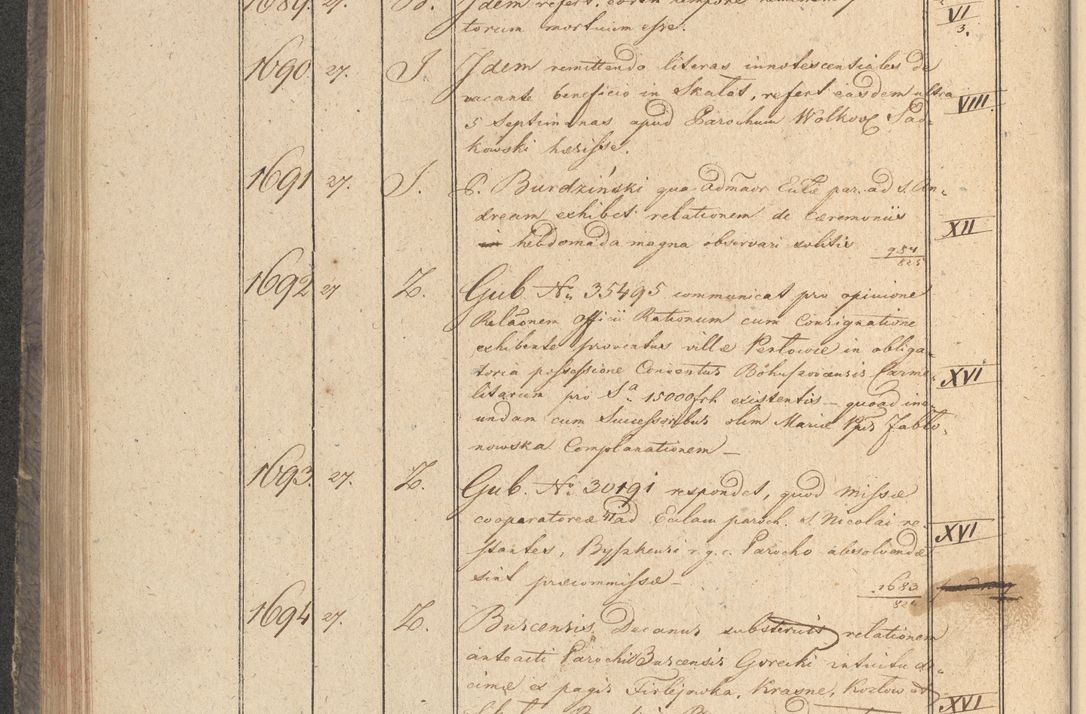 1689. 27. Idem refert, eodem tempore
torum mortuum esse.
VI
3.
1690. 27. J. Idem remittendo literas innotescentiales de
vacante beneficio in Skałat, refert easdem ultra
VIII.
5 Septimanas apud Parochum Wołkow Sad-
kowski hæsisse.
1691 27. J. P. Burdziński qua Admāor Eccłæ par. ad S. An-
dream exhibet relationem de Cæremoniis
XII
in hebdomada magna observari solitis
954
825
1692 27 Z. Gub. No. 35495 communicat pro opinione
Relāonem Officii Rationum cum Consignatione
exhibente proventus villæ Perłowce in obliga-
toria possessione Conventus Bohuszovcensis Carme-
XVI
litarum pro Sa. 15000 frh existentis – quoad ine-
undam cum Successoribus olim Mariæ Jabło-
nowska Complanationem –
1693. 27. Z. Gub. No. 30191 respondet, quod missæ
cooperatores ad Ecclam paroch. S. Nicolai re-
XVI
stantes, r. g. c. Parocho absolvendæ
sint præcommissæ –
1683
826
1694 27. Z. Buscensis Decanus substernit relationem
anteacti Parochi Buscensis Gorecki intuitu de-
cimæ ex pagis Firlejowka, Krasne, Kozłow et
XVI